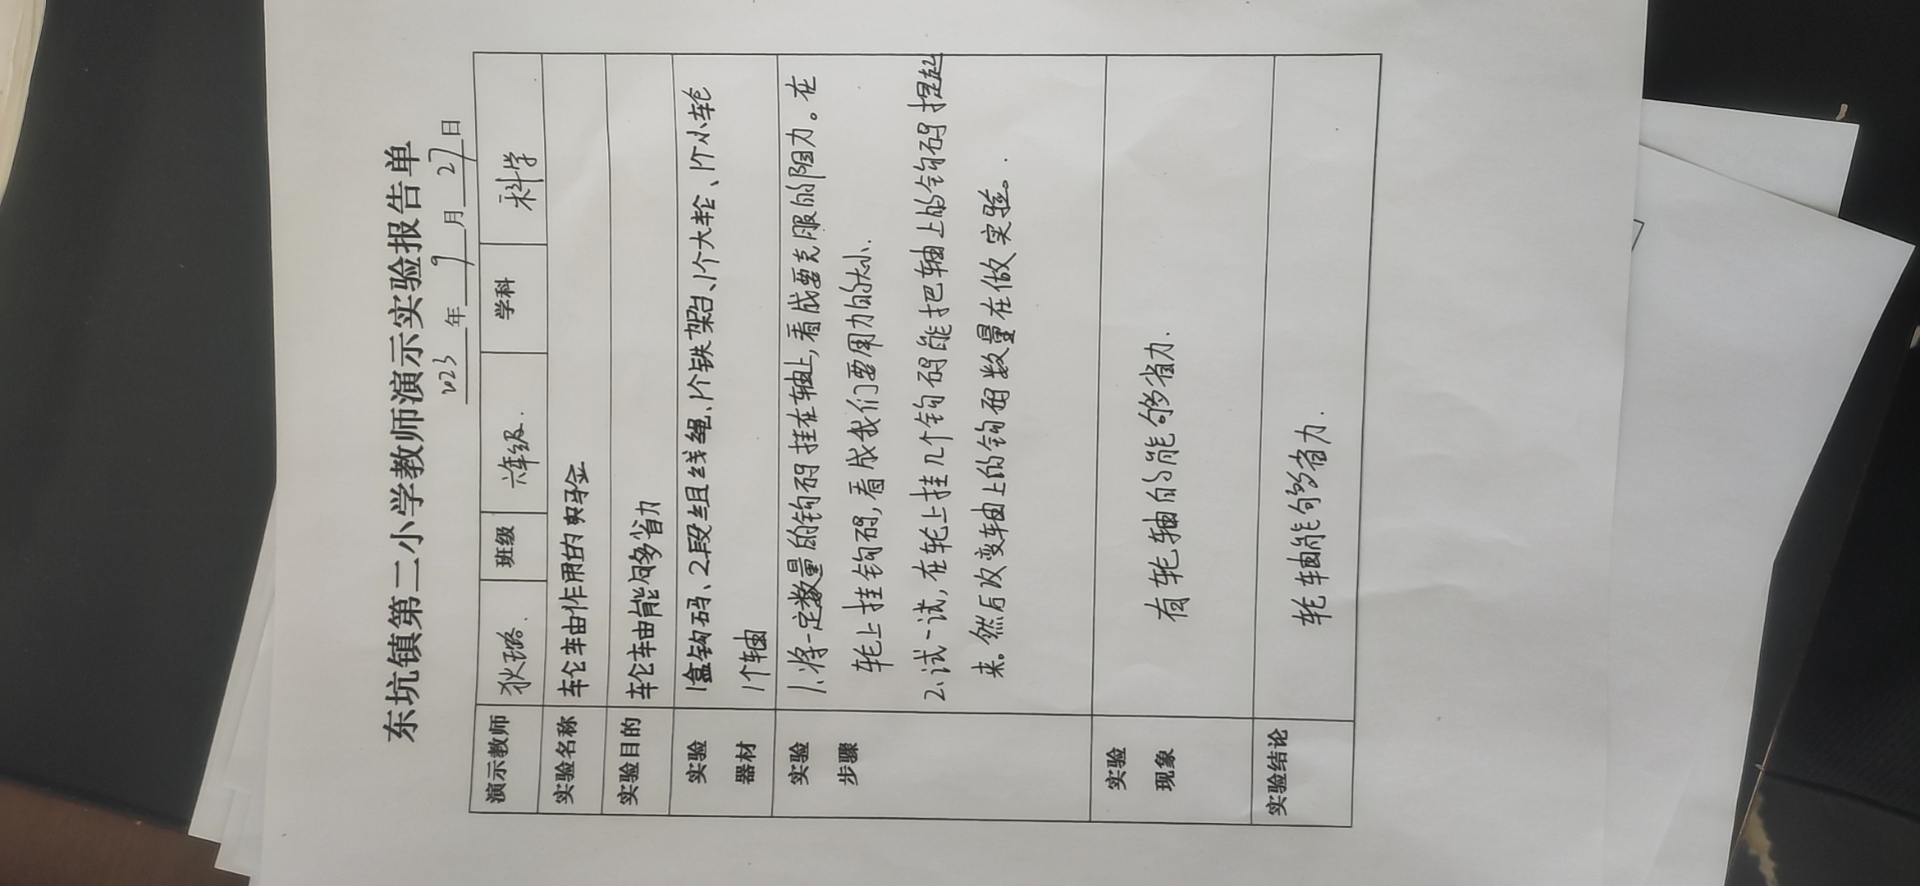 东坑镇第二小学教师演示实验报告单
2023 年 9 月 27 日
演示教师 狄璐. 班级 六年级. 学科 科学
实验名称 轮轴作用的实验
实验目的 轮轴能够省力
实验器材 1盒钩码、2段组线绳、1个铁架台、1个大轮、1个小轮
1个轴
实验步骤 1.将一定数量的钩码挂在轴上,看成要克服的阻力。在
轮上挂钩码,看成我们要用力的大小.
2.试一试,在轮上挂几个钩码能把轴上的钩码提起
来。然后改变轴上的钩码数量在做实验。
实验现象 有轮轴的能够省力.
实验结论 轮轴能够省力.